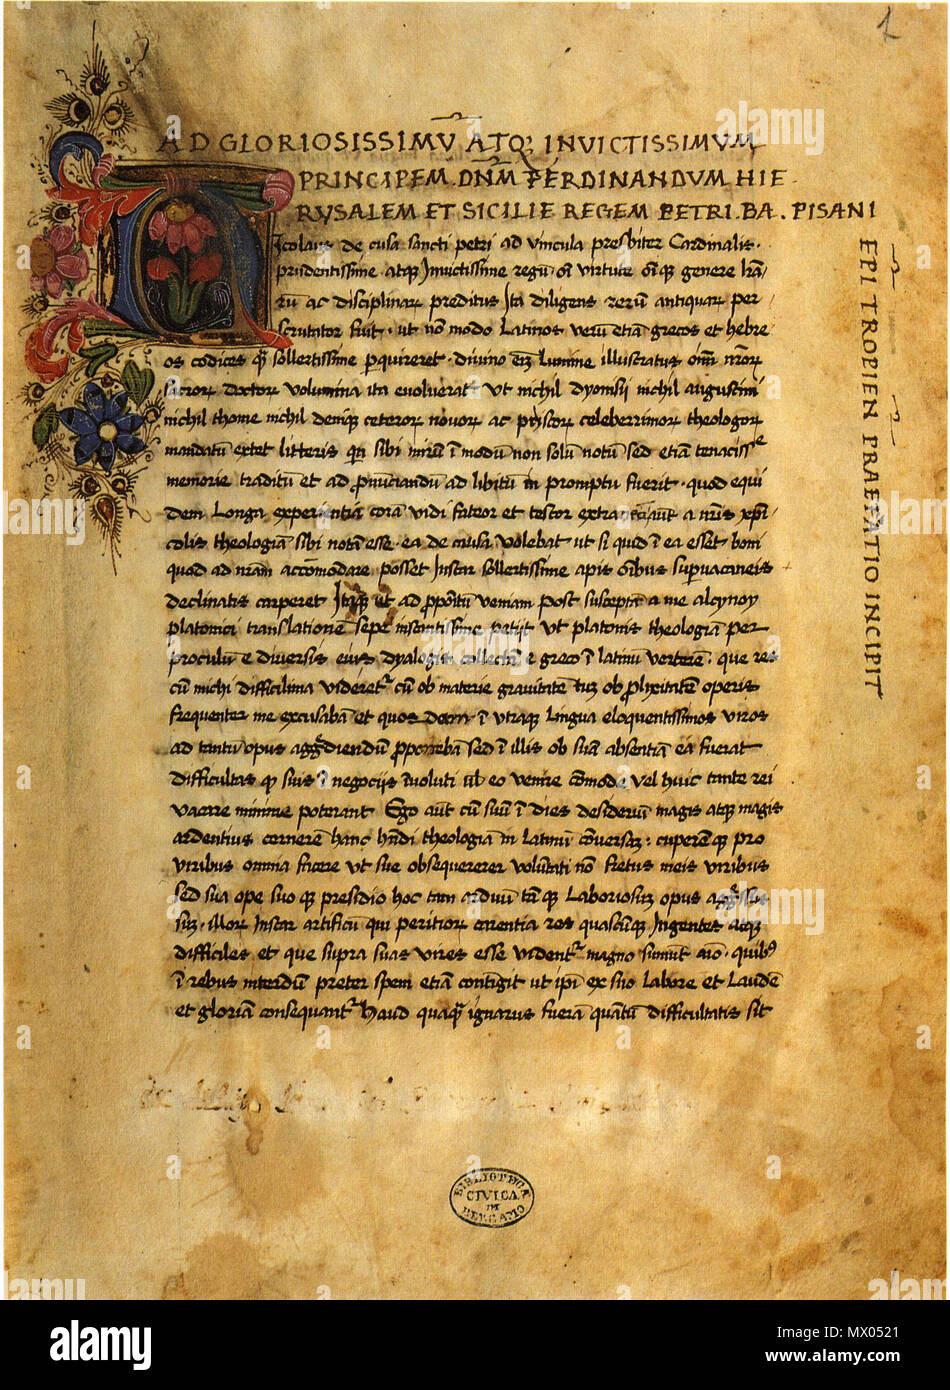 1
AD GLORIOSISSIMŪ ATQ; INVICTISSIMUM
PRINCIPEM . DÑM FERDINANDVM HIE
RVSALEM ET SICILIE REGEM PETRI . BA . PISANI
EPI TROPIEN PRAEFATIO INCIPIT
Nicolaus de cusa sancti petri ad vincula presbiter Cardinalis .
prudentissime atqꝫ Invictissime regū oī virtute oīqꝫ genere lrā
rū ac disciplinaꝝ preditus Ita diligens rerū antiquaꝝ per
scrutator fuit . ut nō modo Latinos verū etiā grecos et hebre
os codices qꝫ sollertissime ꝑquireret . divino Lumine illustratus oīū nrōꝝ
sacroꝝ doctoꝝ volumina ita evoluerat ut nichil dyonisii nichil augustini
nichil thome nichil deniqꝫ ceteroꝝ novoꝝ ac priscoꝝ celeberrimoꝝ theologoꝝ
mandatū extet litteris qn̄ sibi mirū ī modū non solū notū sed etiā tenacissᵉ
memorie traditū et ad ꝓnūciandū ad libitū in promptu fuerit . quod equi
dem Longa experientia corā vidi fateor et testor extra a nrīs xp̄i
colis theologiā sibi notā esse . ea de causa volebat ut si quid ī ea esset boni
quod ad nrām accōmodare posset Instar sollertissime apis oībus suꝑvacaneis
declinatis carperet Itaqꝫ ut ad ꝓpoītū veniam post susceptā a me alcynoy
platonici translationē sepe instantissime petijt ut platonis theologiā per
proculū e diversis eius dyalogis collectā e greco ī latinū verterē . que res
cū michi difficilima videretᵘʳ cū ob materie gravitatē tū ob ꝓlixitatē operis
frequenter me excusabā et quosdam ī utraqꝫ lingua eloquentissimos viros
ad tantū opus aggrediendū ꝓponebā sed ī illis ob suā absentiā ea fuerat
difficultas ꝙ suis ī negocijs īvoluti eo venire cōmode vel huic tante rei
vacare minime poterant Ego aūt cū suū ī dies desideriū magis atqꝫ magis
ardentius cernerē hanc theologiā in Latinū cōversā . cuperēqꝫ pro
viribus omnia facere ut sue obsequerer volūtati nō fretus meis viribus
sed sua ope suoqꝫ presidio hoc tam arduū tāqꝫ Laboriosū opus aggressus
sū . Illoꝝ Instar artificū qui peritioꝝ carentia res quascūqꝫ Ingentes atqꝫ
difficiles et que supra suas vires esse videntᵘʳ magno sumūt aīo . quibꝰ
ī rebus interdū preter spem etiā contīgit ut ipī ex suo labore et Laudē
et gloriā consequantᵘʳ Haud quaqꝫ ignarus fuerā quātū difficultatis sit
BIBLIOTECA
CIVICA
DI
BERGAMO
alamy
Image ID: MX0521
www.alamy.com